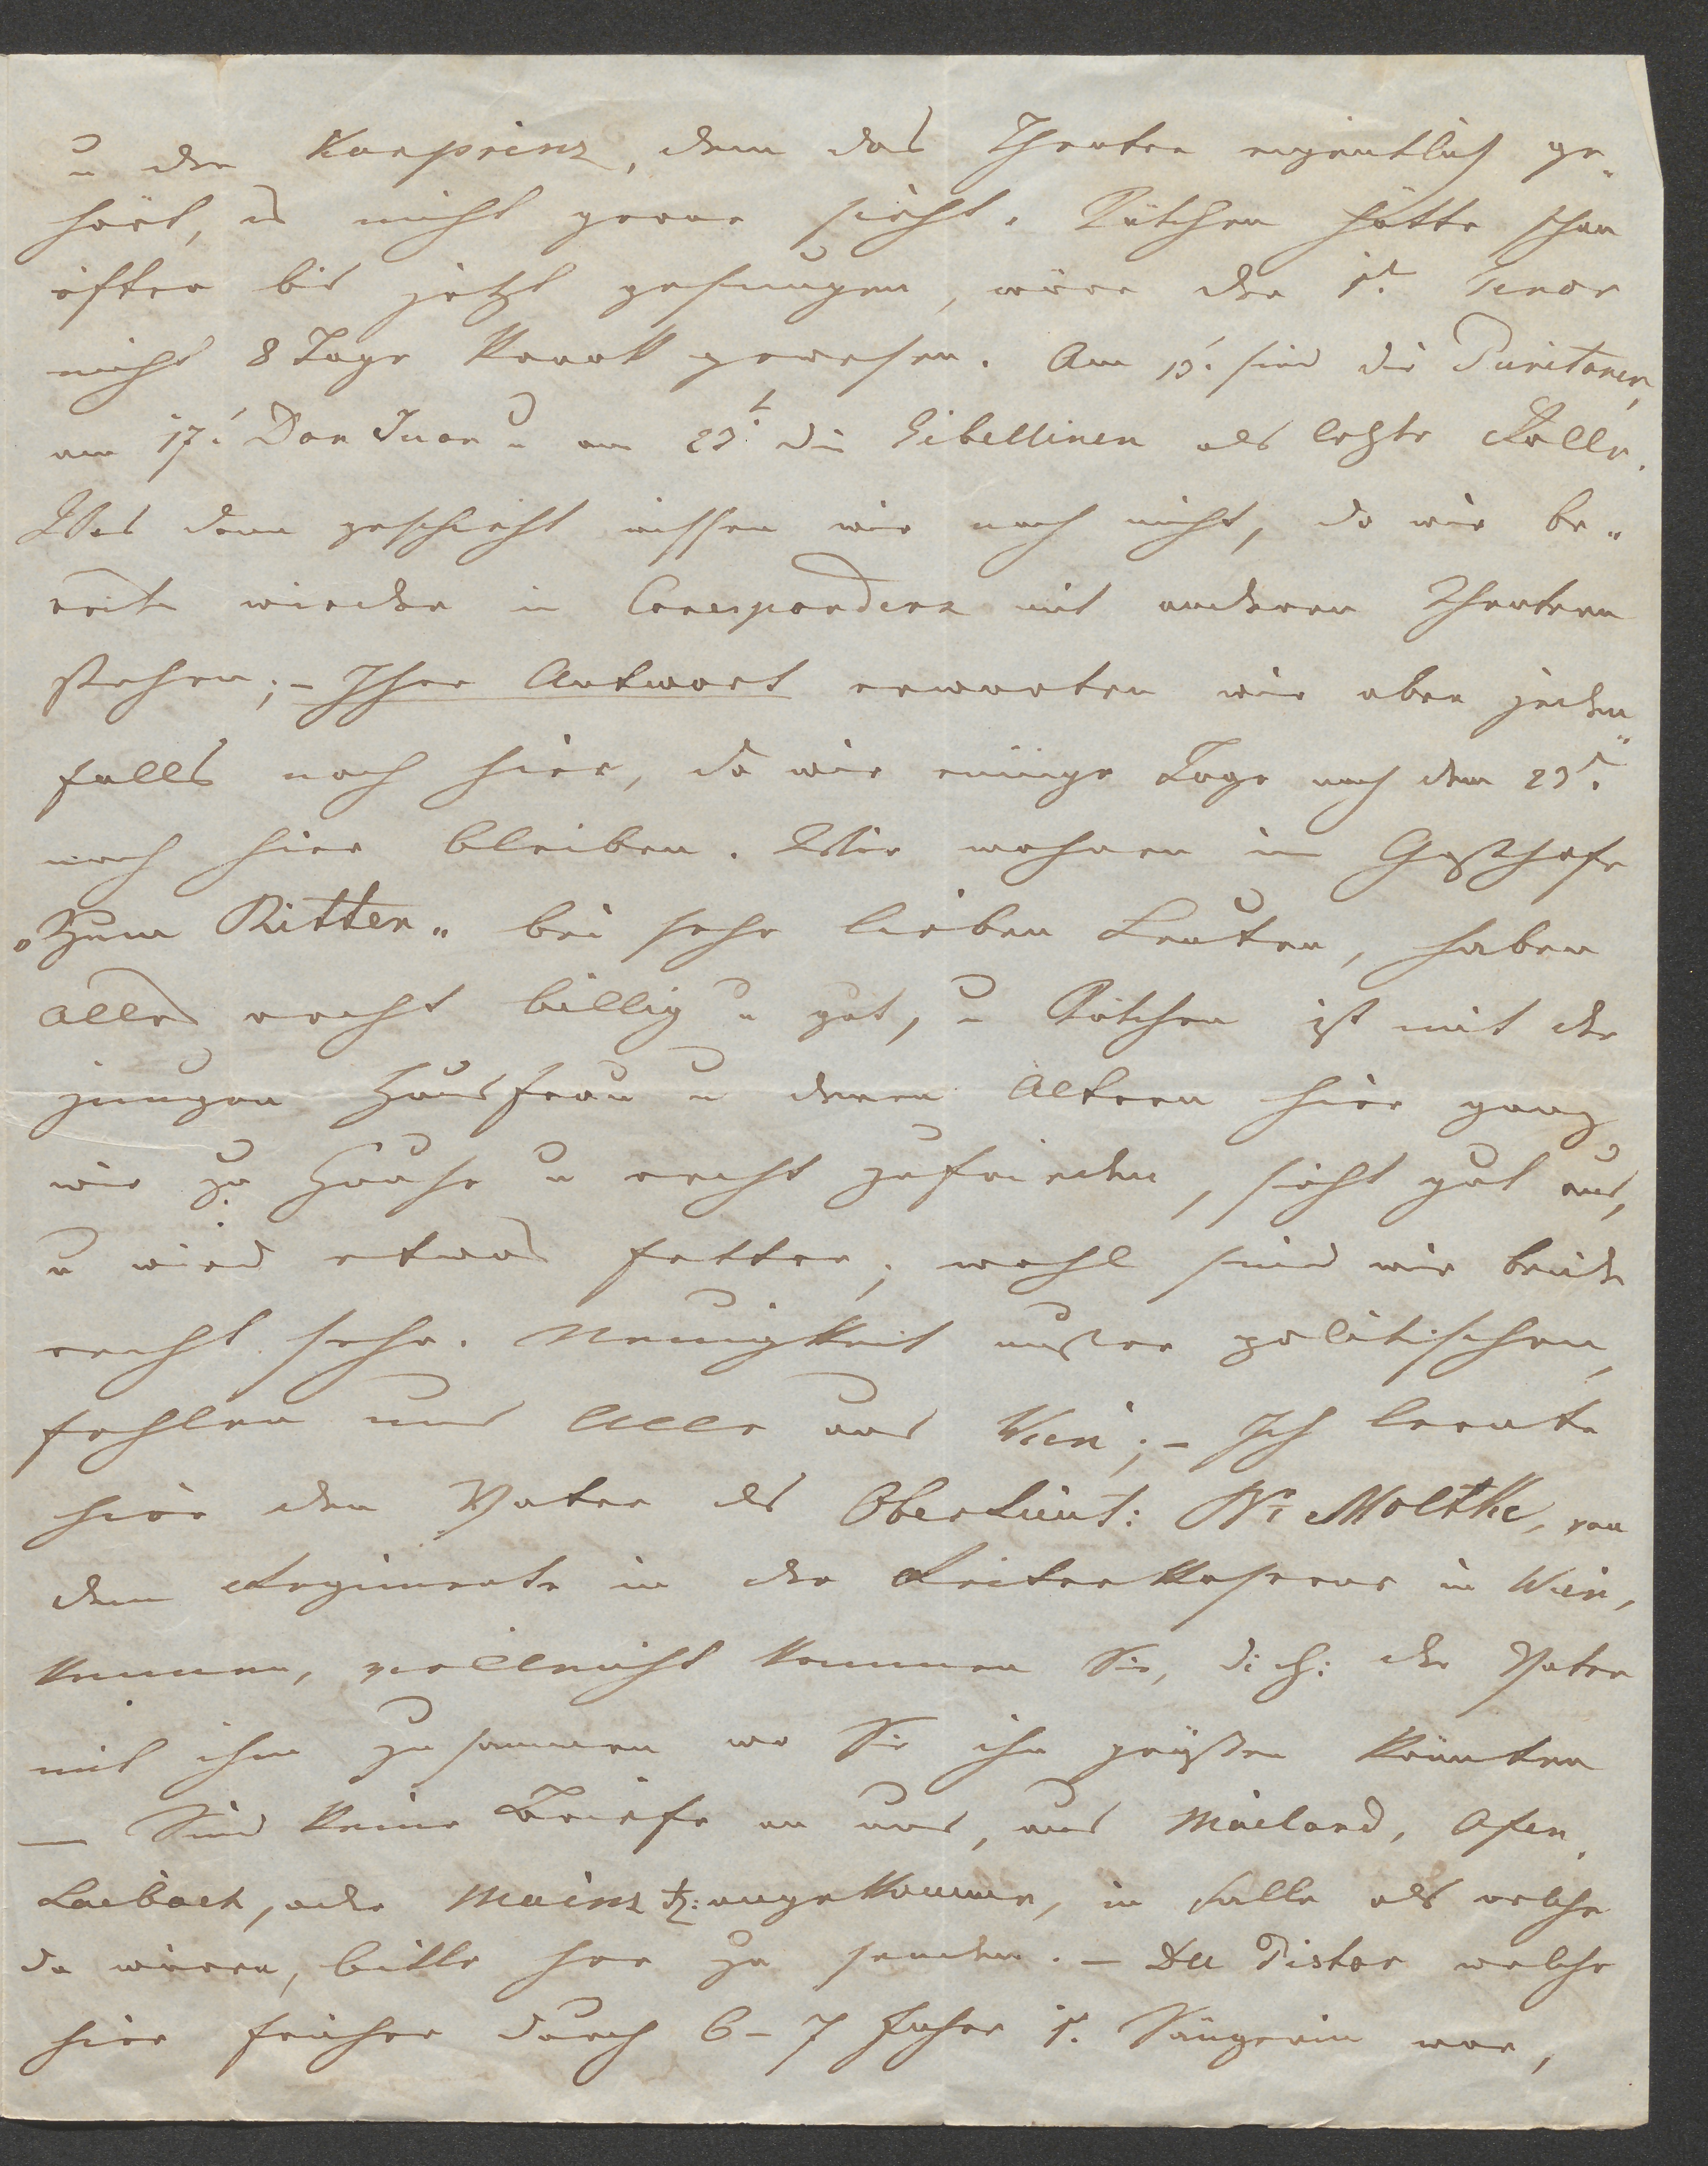 u der Kurprinz, dem das Theater eigentlich ge„
hört, es nicht gerne sieht. Kätchen hätte schon
öfter bis jetzt gesungen, wäre der 1t. Tenor
nicht 8 Tage krank gewesen. Am 15t. sind die Puritaner,
am 17t. Don Juan u am 23t. die Gibellinen als letzte Rolle.
Was dann geschieht wissen wir noch nicht, da wir be„
reits wieder in Correspondenz mit anderen Theatern
stehen; – Ihre Antwort erwarten wir aber jeden„
falls noch hier, da wir einige Tage nach dem 23t.
noch hier bleiben. Wir wohnen im Gasthofe
„Zum Ritter„ bei sehr lieben Leuten, haben
Alles recht billig u gut, u Kätchen ist mit der
jungen Hausfrau u deren Altern hier ganz
wie zu Hause u recht zufrieden, sieht gut aus,
u wird etwas fetter; wohl sind wir beide
recht sehr. Neuigkeit außer politischen,
fehlen uns Alle aus Wien; – Ich lernte
hier den Vater des Oberlieut: Moltke, von
dem Regimente in der Reiterkaserne in Wien,
kennen, vielleicht kommen Sie, d: h: der Vater
mit ihm zusammen wo Sie ihn grüßen könnten
— Sind keine Briefe an uns, aus Mailand, Ofen,
Laibach, oder Mainz etz: angekommen, im Falle als welche
da wären, bitte her zu senden. – Die Pistor welche
hier früher durch 6 – 7 Jahre 1t. Sängerin war,